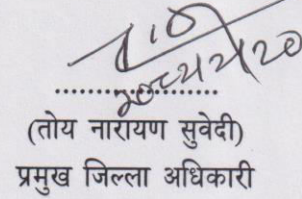 ....................
(तोय नारायण सुवेदी)
प्रमुख जिल्ला अधिकारी